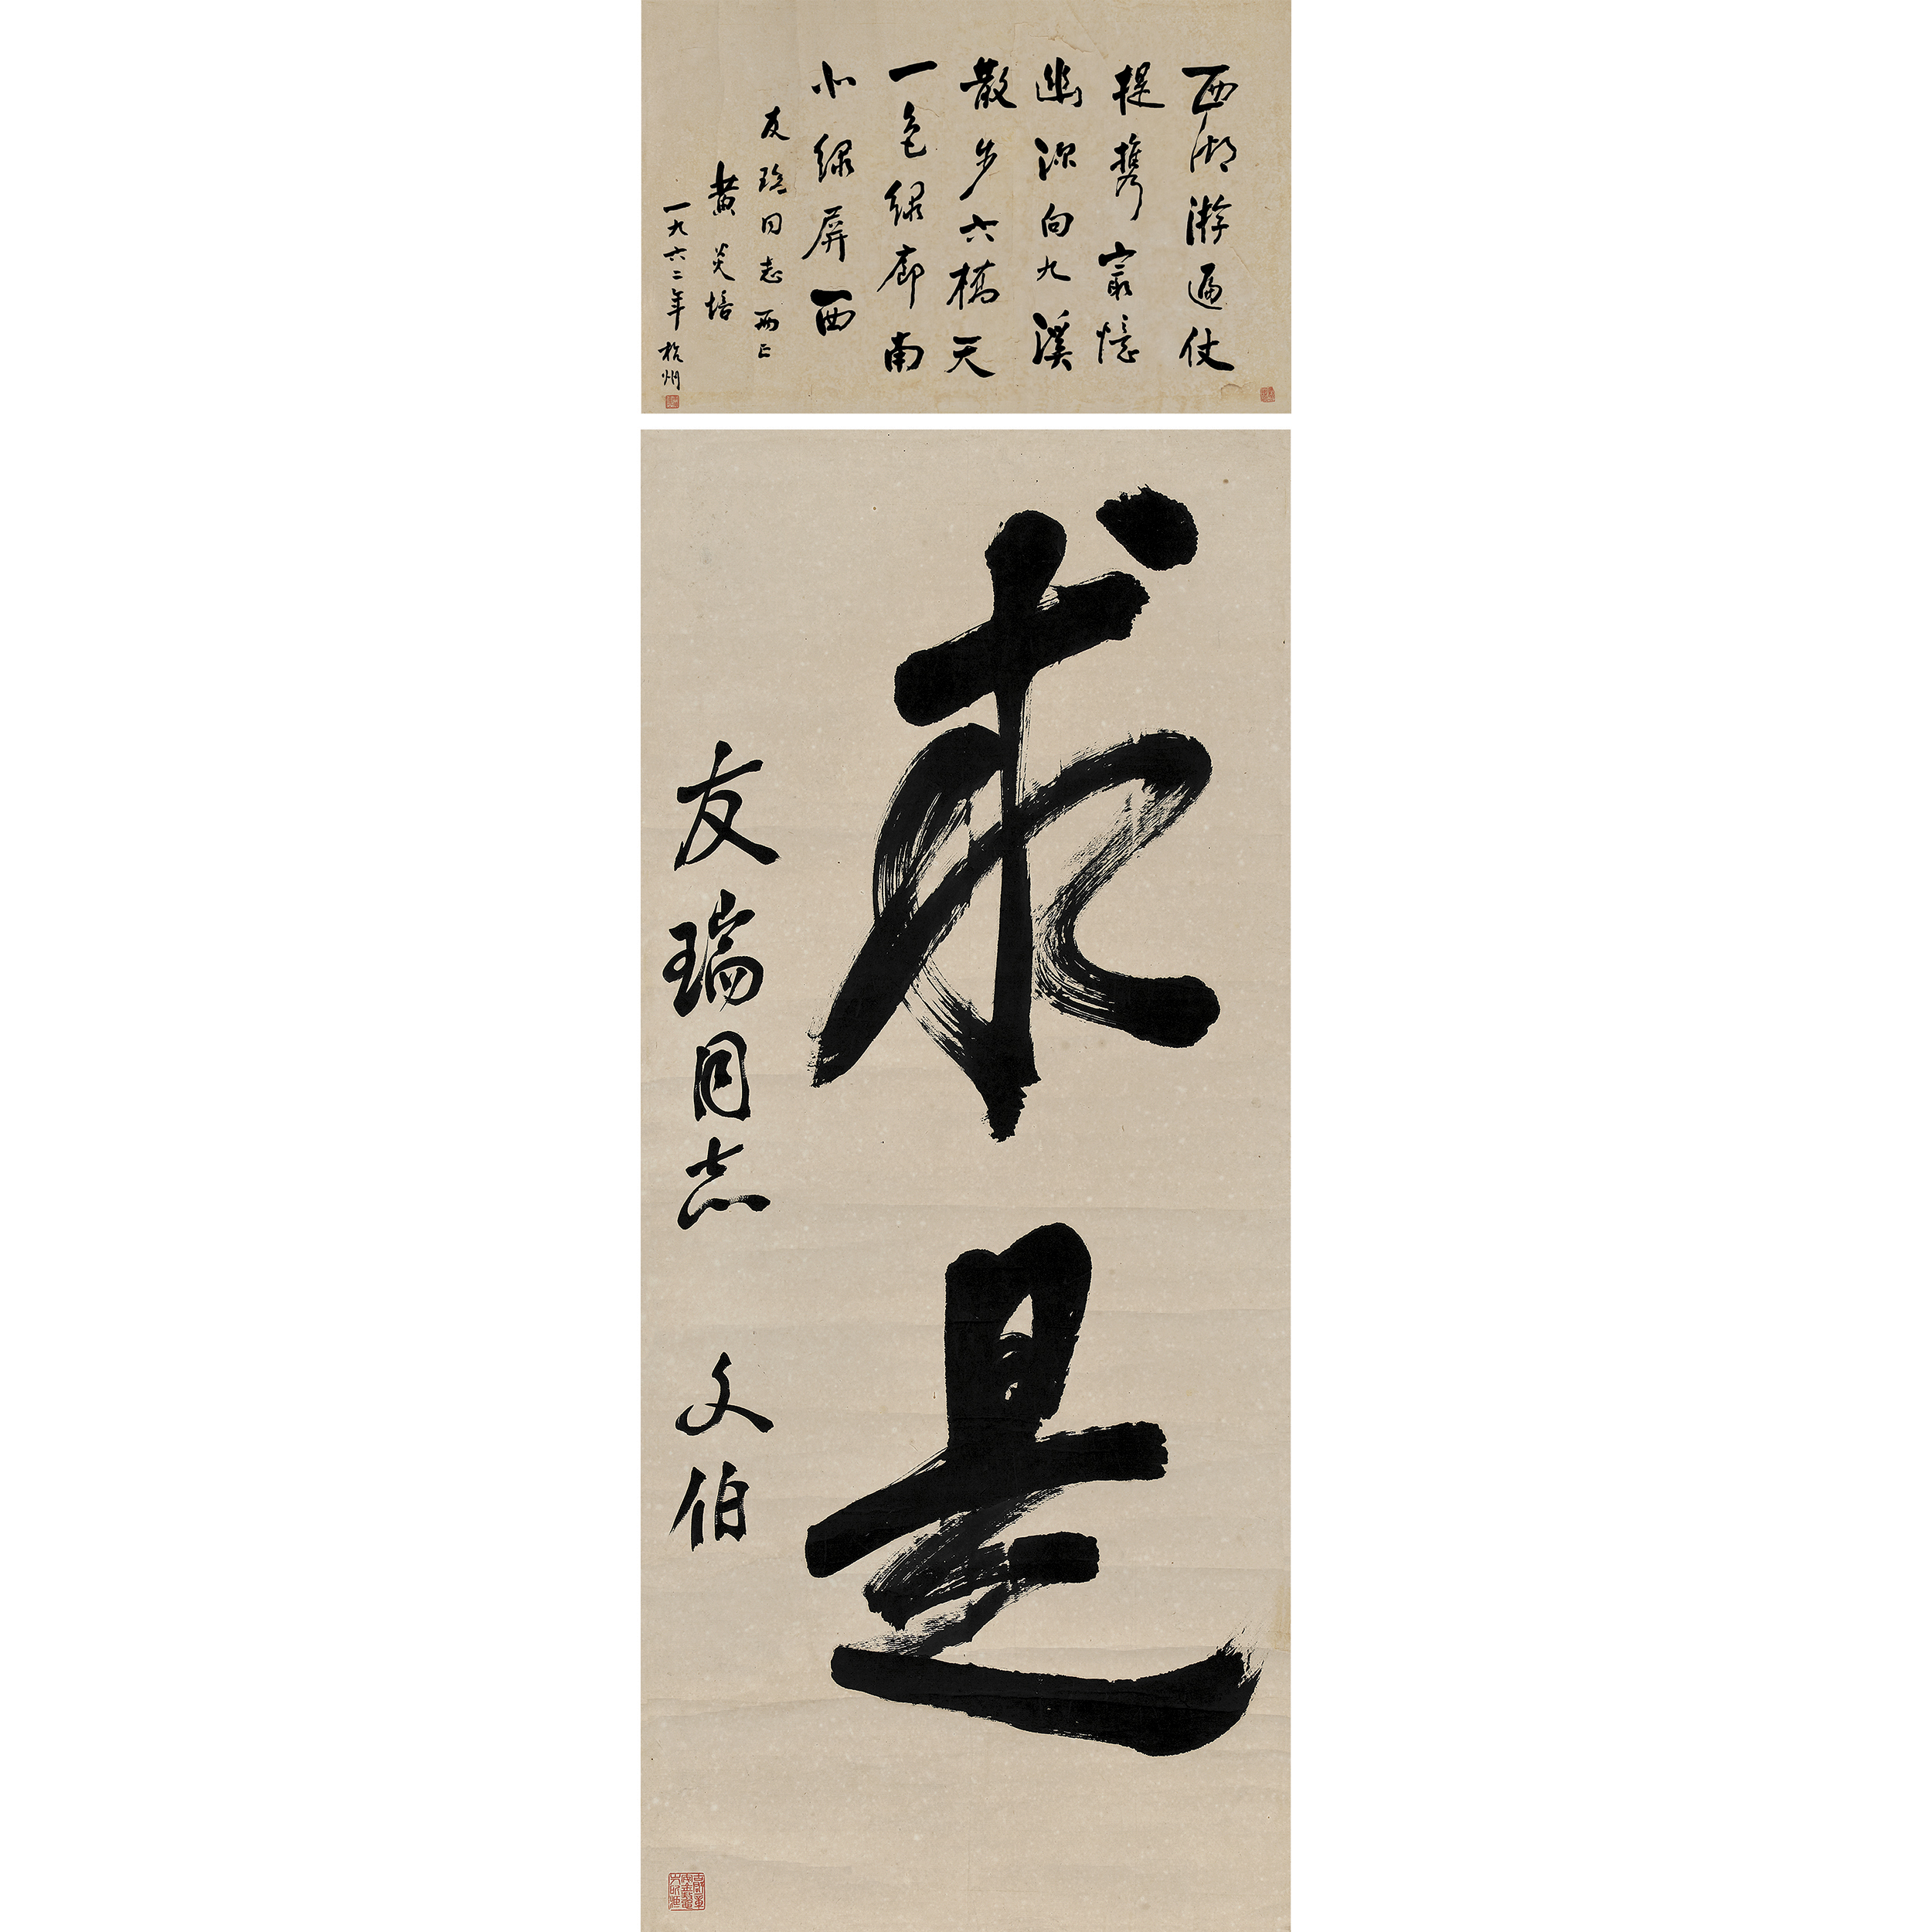 西湖游遍仗
提携最憶
幽深向九溪
散步六橋天
一色绿廊南
北绿屏西
友瑞同志两正
黄炎培
一九六二年杭州
求是
友瑞同志 文伯